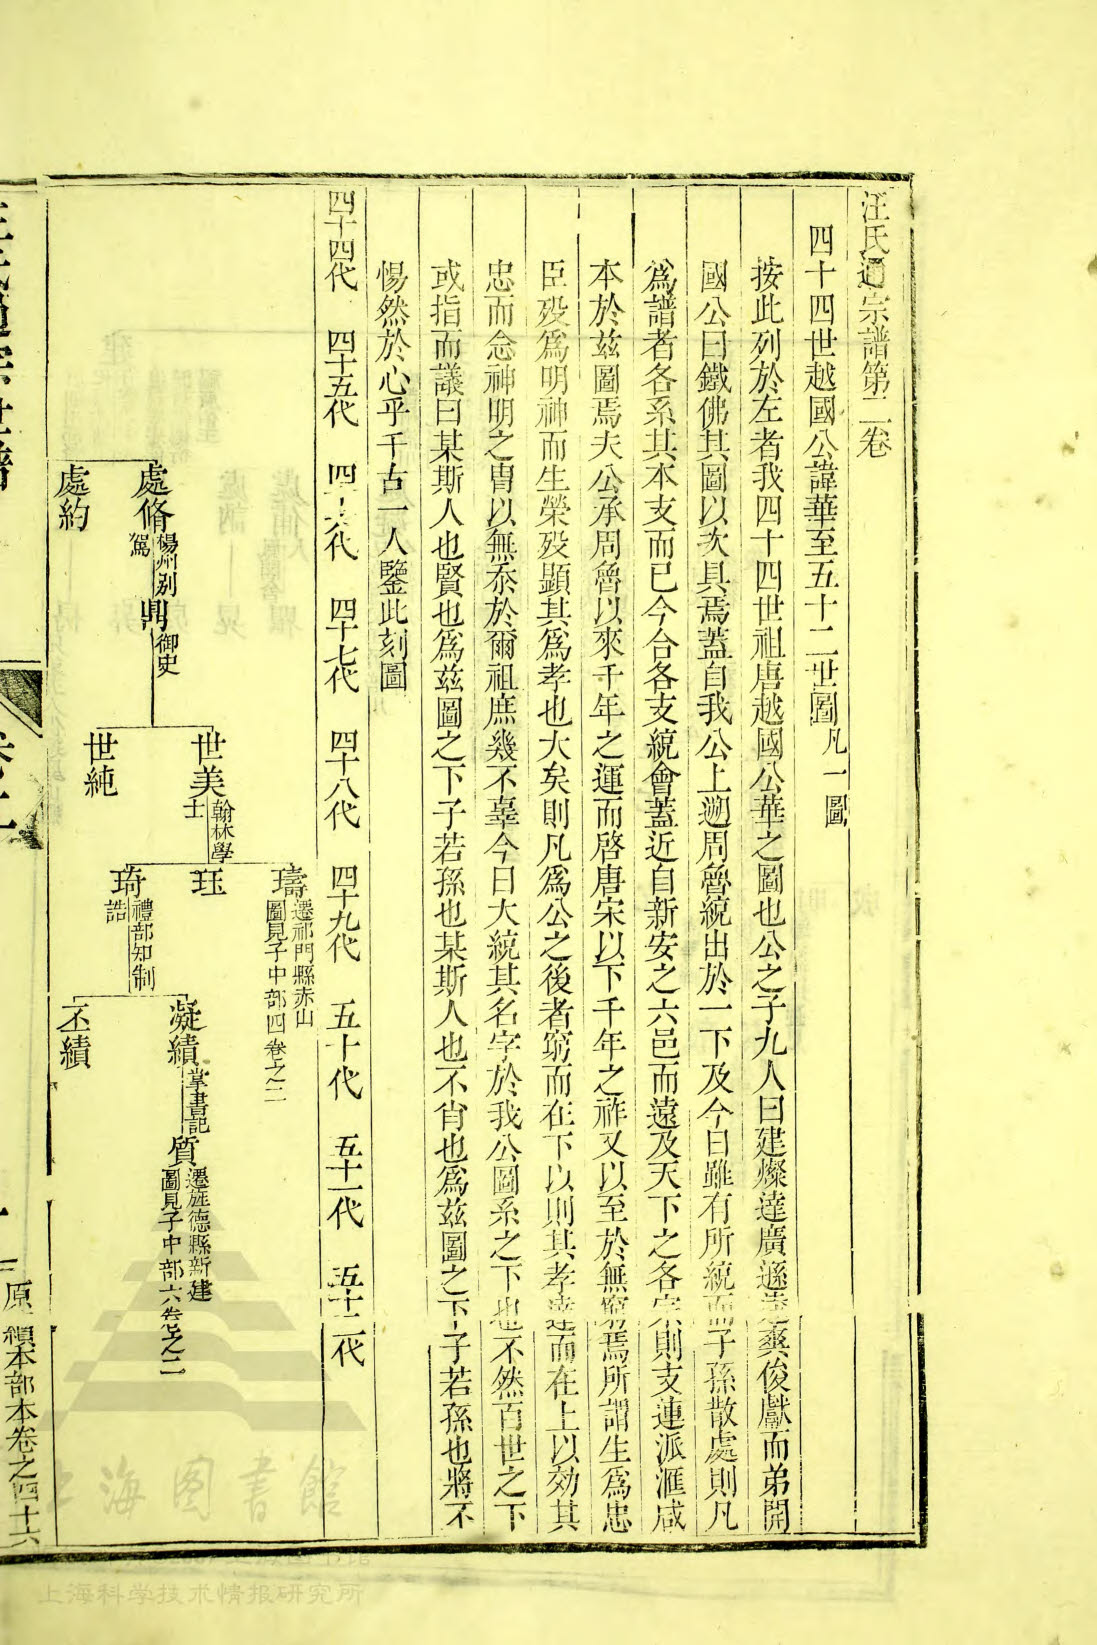 汪氏通宗譜第二卷
四十四世越國公諱華至五十二世圖凡一圖
按此列於左者我四十四世祖唐越國公華之圖也公之子九人曰建燦達廣遜逵爽俊獻而弟開
國公曰鐵佛其圖以次具焉蓋自我公上遡周魯統出於一下及今日雖有所統而子孫散處則凡
爲譜者各系其本支而已今合各支統會蓋近自新安之六邑而遠及天下之各宗則支連派滙咸
本於兹圖焉夫公承周魯以來千年之運而啓唐宋以下千年之祚又以至於無窮焉所謂生爲忠
臣殁爲明神而生榮殁顯其爲孝也大矣則凡爲公之後者窮而在下以則其孝達而在上以効其
忠而念神明之胄以無忝於爾祖庶幾不辜今日大統其名字於我公圖系之下也不然百世之下
或指而議曰某斯人也賢也爲兹圖之下子若孫也某斯人也不肖也爲兹圖之下子若孫也將不
惕然於心乎千古一人鑒此刻圖
四十四代 四十五代 四十六代 四十七代 四十八代 四十九代 五十代 五十一代 五十二代
璹遷祁門縣赤山
圖見子中部四卷之二
處脩楊州别
駕
鼎御史
世美翰林學
士
珏
凝績掌書記
質遷旌德縣新建
圖見子中部六卷之二
處約
世純
琦禮部知制
誥
丕績
汪氏通宗世譜
卷之二
原缺本部本卷之四十六
上海图书馆
上海科学技术情报研究所